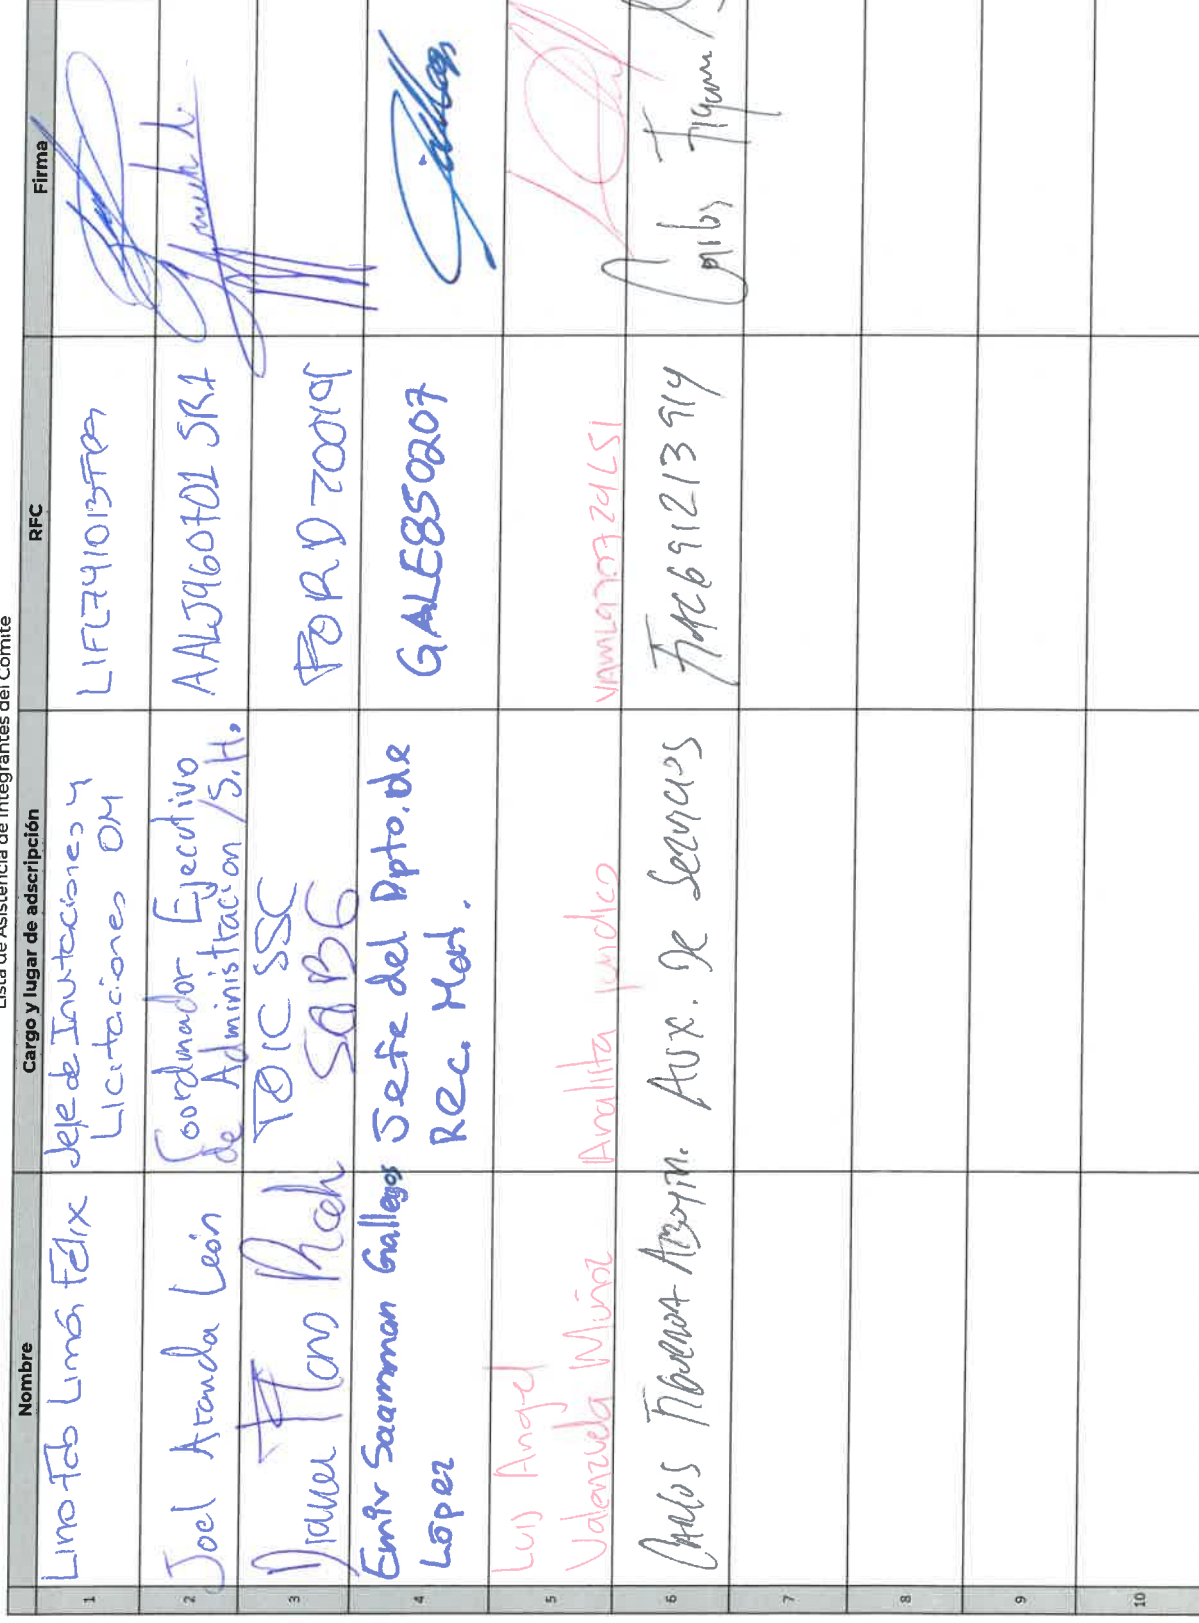 Lista de Asistencia de Integrantes del Comité
Nombre
Cargo y lugar de adscripción
RFC
Firma
1
Lino Fab Limón Félix
Jefe de Invitaciones y
Licitaciones OM
2
Joel Aranda León
Coordinador Ejecutivo
de Administracion /S.H.
AALJ960701 5R1
3
TOIC SSC
SABG
4
Emir Saamman Gallegos
López
Jefe del Dpto. de
Rec. Mat.
GALE850207
5
Luis Angel
Valenzuela Muñoz
Analista juridico
VAML970729LS1
6
Carlos Figueroa
Aux. De Servicios
Carlos
7
8
9
10